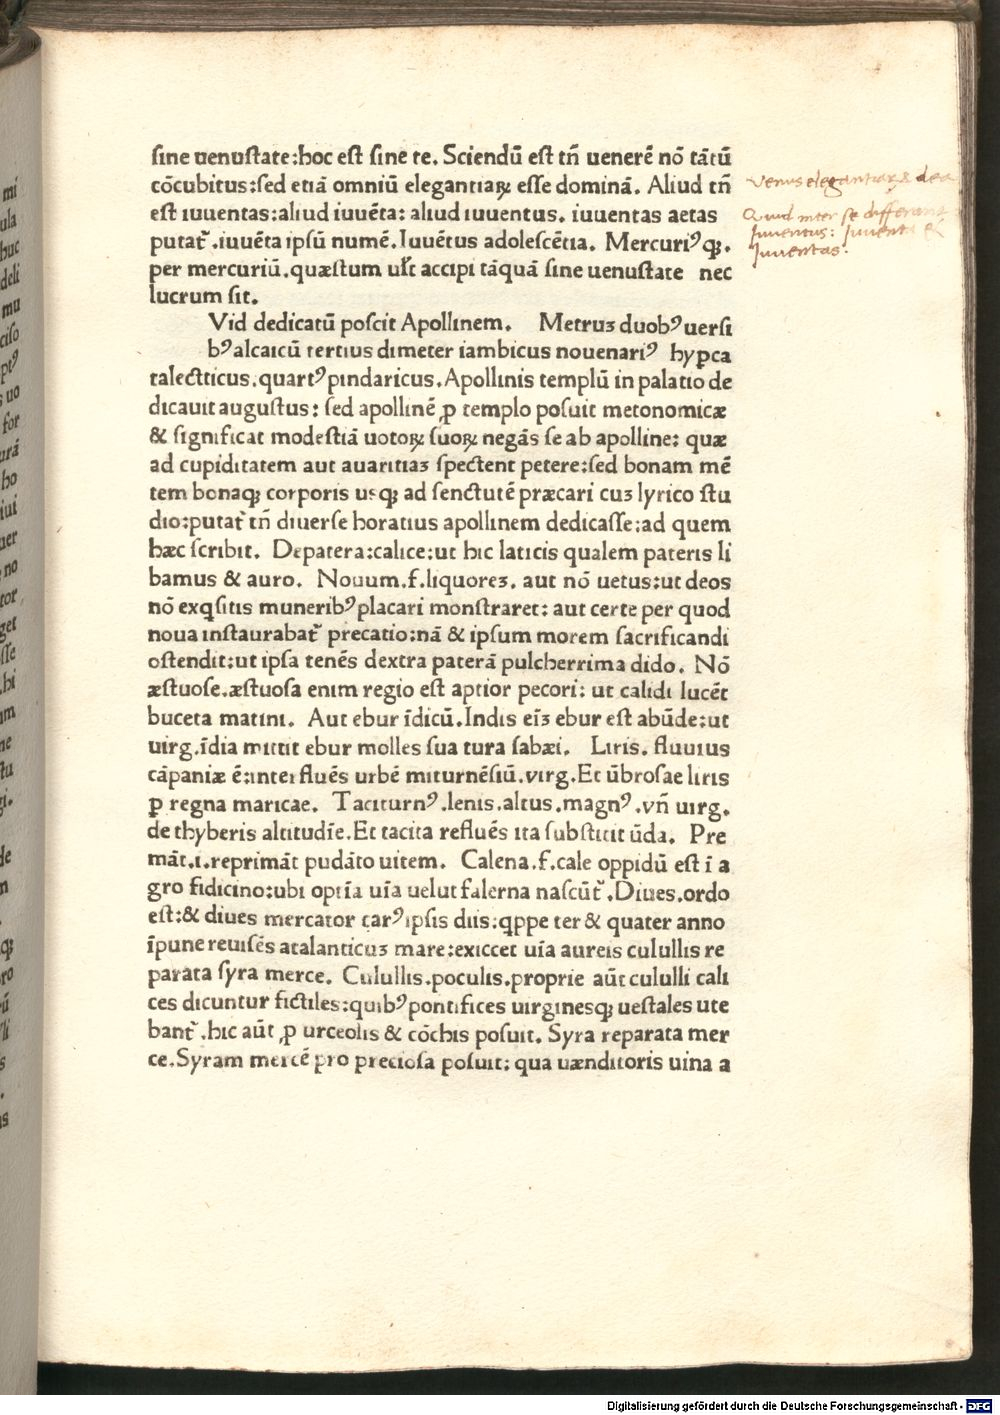 sine uenustate:hoc est sine te. Sciendū est tñ uenerē nō tātū
cōcubitus:sed etiā omniū elegantiaꝝ esse dominā. Aliud tñ
est iuuentas:aliud iuuēta: aliud iuuentus. iuuentas aetas
putat᷑.iuuēta ipsū numē.Iuuētus adolescētia. Mercuriꝰqꝫ.
per mercuriū.quæstum ul̄t accipi tāquā sine uenustate nec
lucrum sit.
Vid dedicatū poscit Apollinem. Metruꝫ duobꝰuersi
bꝰalcaicū tertius dimeter iambicus nouenariꝰ hypca
talecticus.quartꝰpindaricus.Apollinis templū in palatio de
dicauit augustus: sed apollinē ꝓ templo posuit metonomicæ
& significat modestiā uotoꝝ suoꝝ negās se ab apolline: quæ
ad cupiditatem aut auaritiaꝫ spectent petere:sed bonam mē
tem bonaqꝫ corporis usqꝫ ad senctutē præcari cuꝫ lyrico stu
dio:putat᷑ tñ diuerse horatius apollinem dedicasse:ad quem
hæc scribit. Depatera:calice:ut hic laticis qualem pateris li
bamus & auro. Nouum.f.liquoreꝫ. aut nō uetus:ut deos
nō exqsitis muneribꝰplacari monstraret: aut certe per quod
noua instaurabat᷑ precatio:nā & ipsum morem sacrificandi
ostendit:ut ipsa tenēs dextra paterā pulcherrima dido. Nō
æstuose.æstuosa enim regio est aptior pecori: ut calidi lucēt
buceta matini. Aut ebur īdicū.Indis eīꝫ ebur est abūde:ut
uirg.īdia mittit ebur molles sua tura sabæi. Liris. fluuius
cāpaniæ ē:interfluēs urbē miturnēsiū.virg.Et ūbrosae liris
ꝑ regna maricae. Taciturnꝰ.lenis.altus.magnꝰ.vñ uirg.
de thyberis altitudīe.Et tacita refluēs ita substitit ūda. Pre
māt.i.reprimāt pudāto uitem. Calena.f.cale oppidū est ī a
gro fidicino:ubi optīa uīa uelut falerna nascūt᷑.Diues.ordo
est:& diues mercator carꝰipsis diis:qppe ter & quater anno
īpune reuisēs atalanticuꝫ mare:exiccet uīa aureis culullis re
parata syra merce. Culullis.poculis.proprie aūt cululli cali
ces dicuntur fictiles:quibꝰpontifices uirginesqꝫ uestales ute
bant᷑.hic aūt ꝓ urceolis & cōchis posuit. Syra reparata mer
ce.Syram mercē pro preciosa posuit: qua uænditoris uina a
Venus elegantiaꝝ dea
Quid inter se differant
Iuuentus: Iuuenta &
Iuuentas:
Digitalisierung gefördert durch die Deutsche Forschungsgemeinschaft - DFG